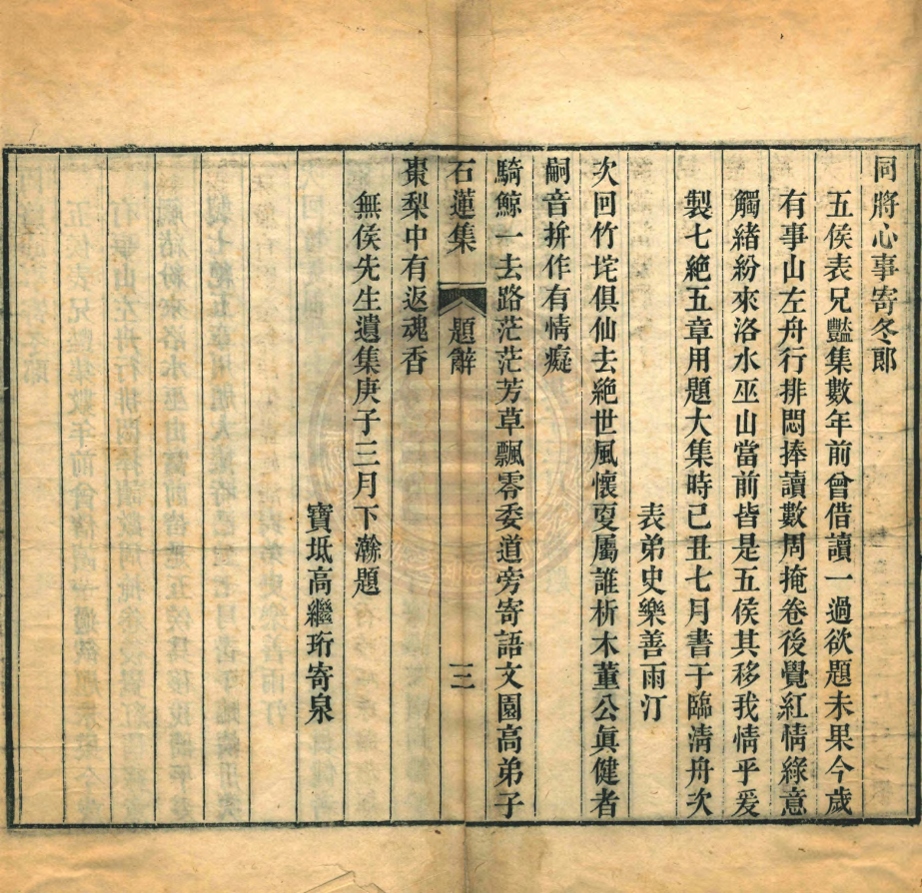 同將心事寄冬郎
五侯表兄豔集數年前曾借讀一過欲題未果今歲
有事山左舟行排悶捧讀數周掩卷後覺紅情綠意
觸緒紛來洛水巫山當前皆是五侯其移我情乎爰
製七絕五章用題大集時己丑七月書于臨清舟次
表弟史樂善雨汀
次回竹垞俱仙去絕世風懷更屬誰析木董公眞健者
嗣音拚作有情癡
騎鯨一去路茫茫芳草飄零委道旁寄語文園高弟子
石蓮集
題辭
三
棗梨中有返魂香
無侯先生遺集庚子三月下瀚題
寶坻高繼珩寄泉